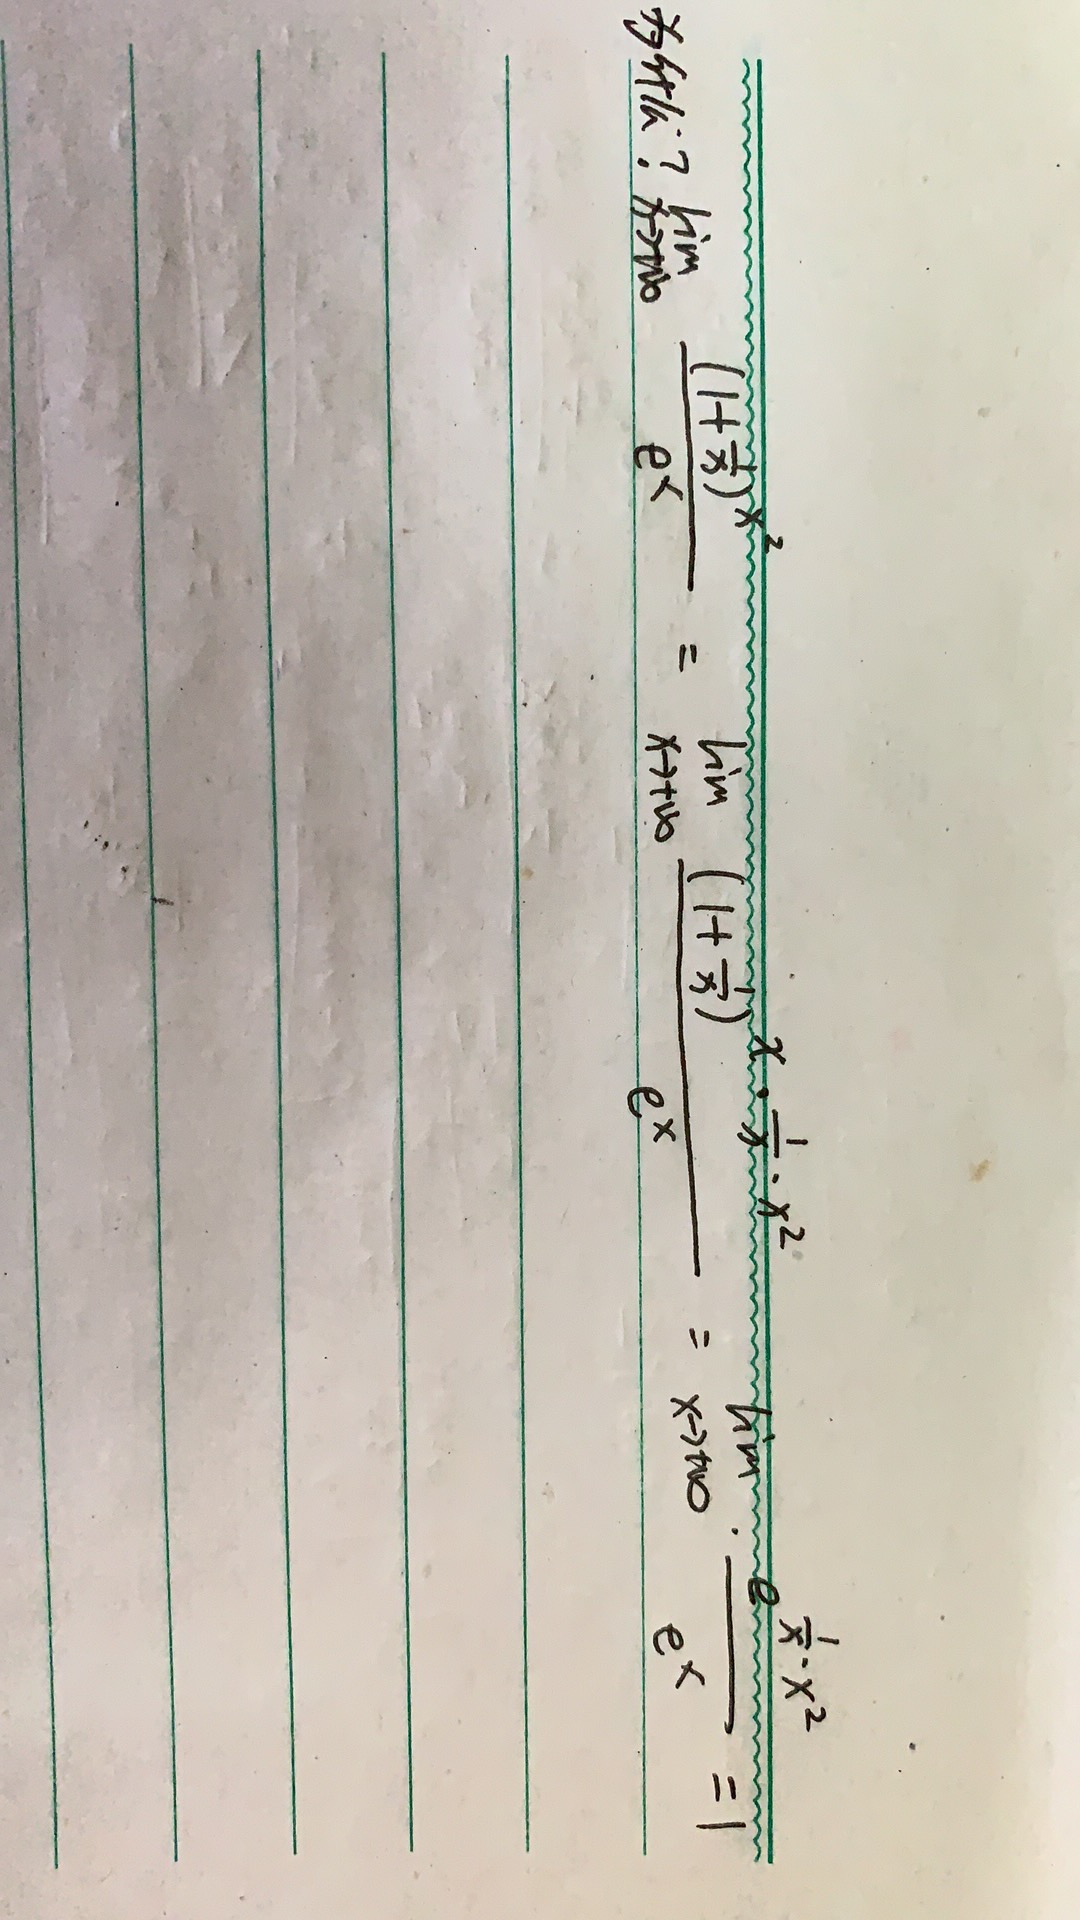 为什么? lim x→+∞ (1+1/x)^x^2 / e^x = lim x→+∞ (1+1/x)^x·1/x·x^2 / e^x = lim x→+∞ · e^1/x·x^2 / e^x = 1